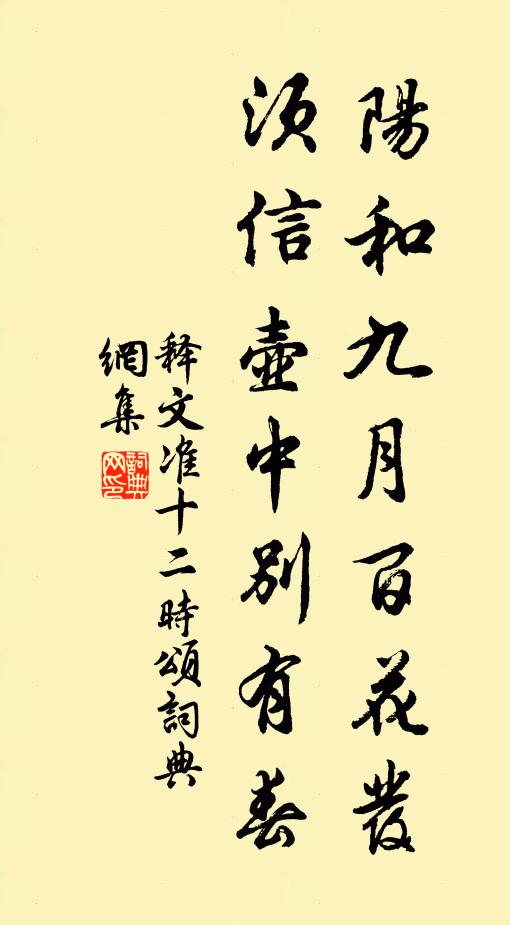 陽和九月百花發
須信壺中別有春
释文准十二時頌詞典
網集
詞典網印